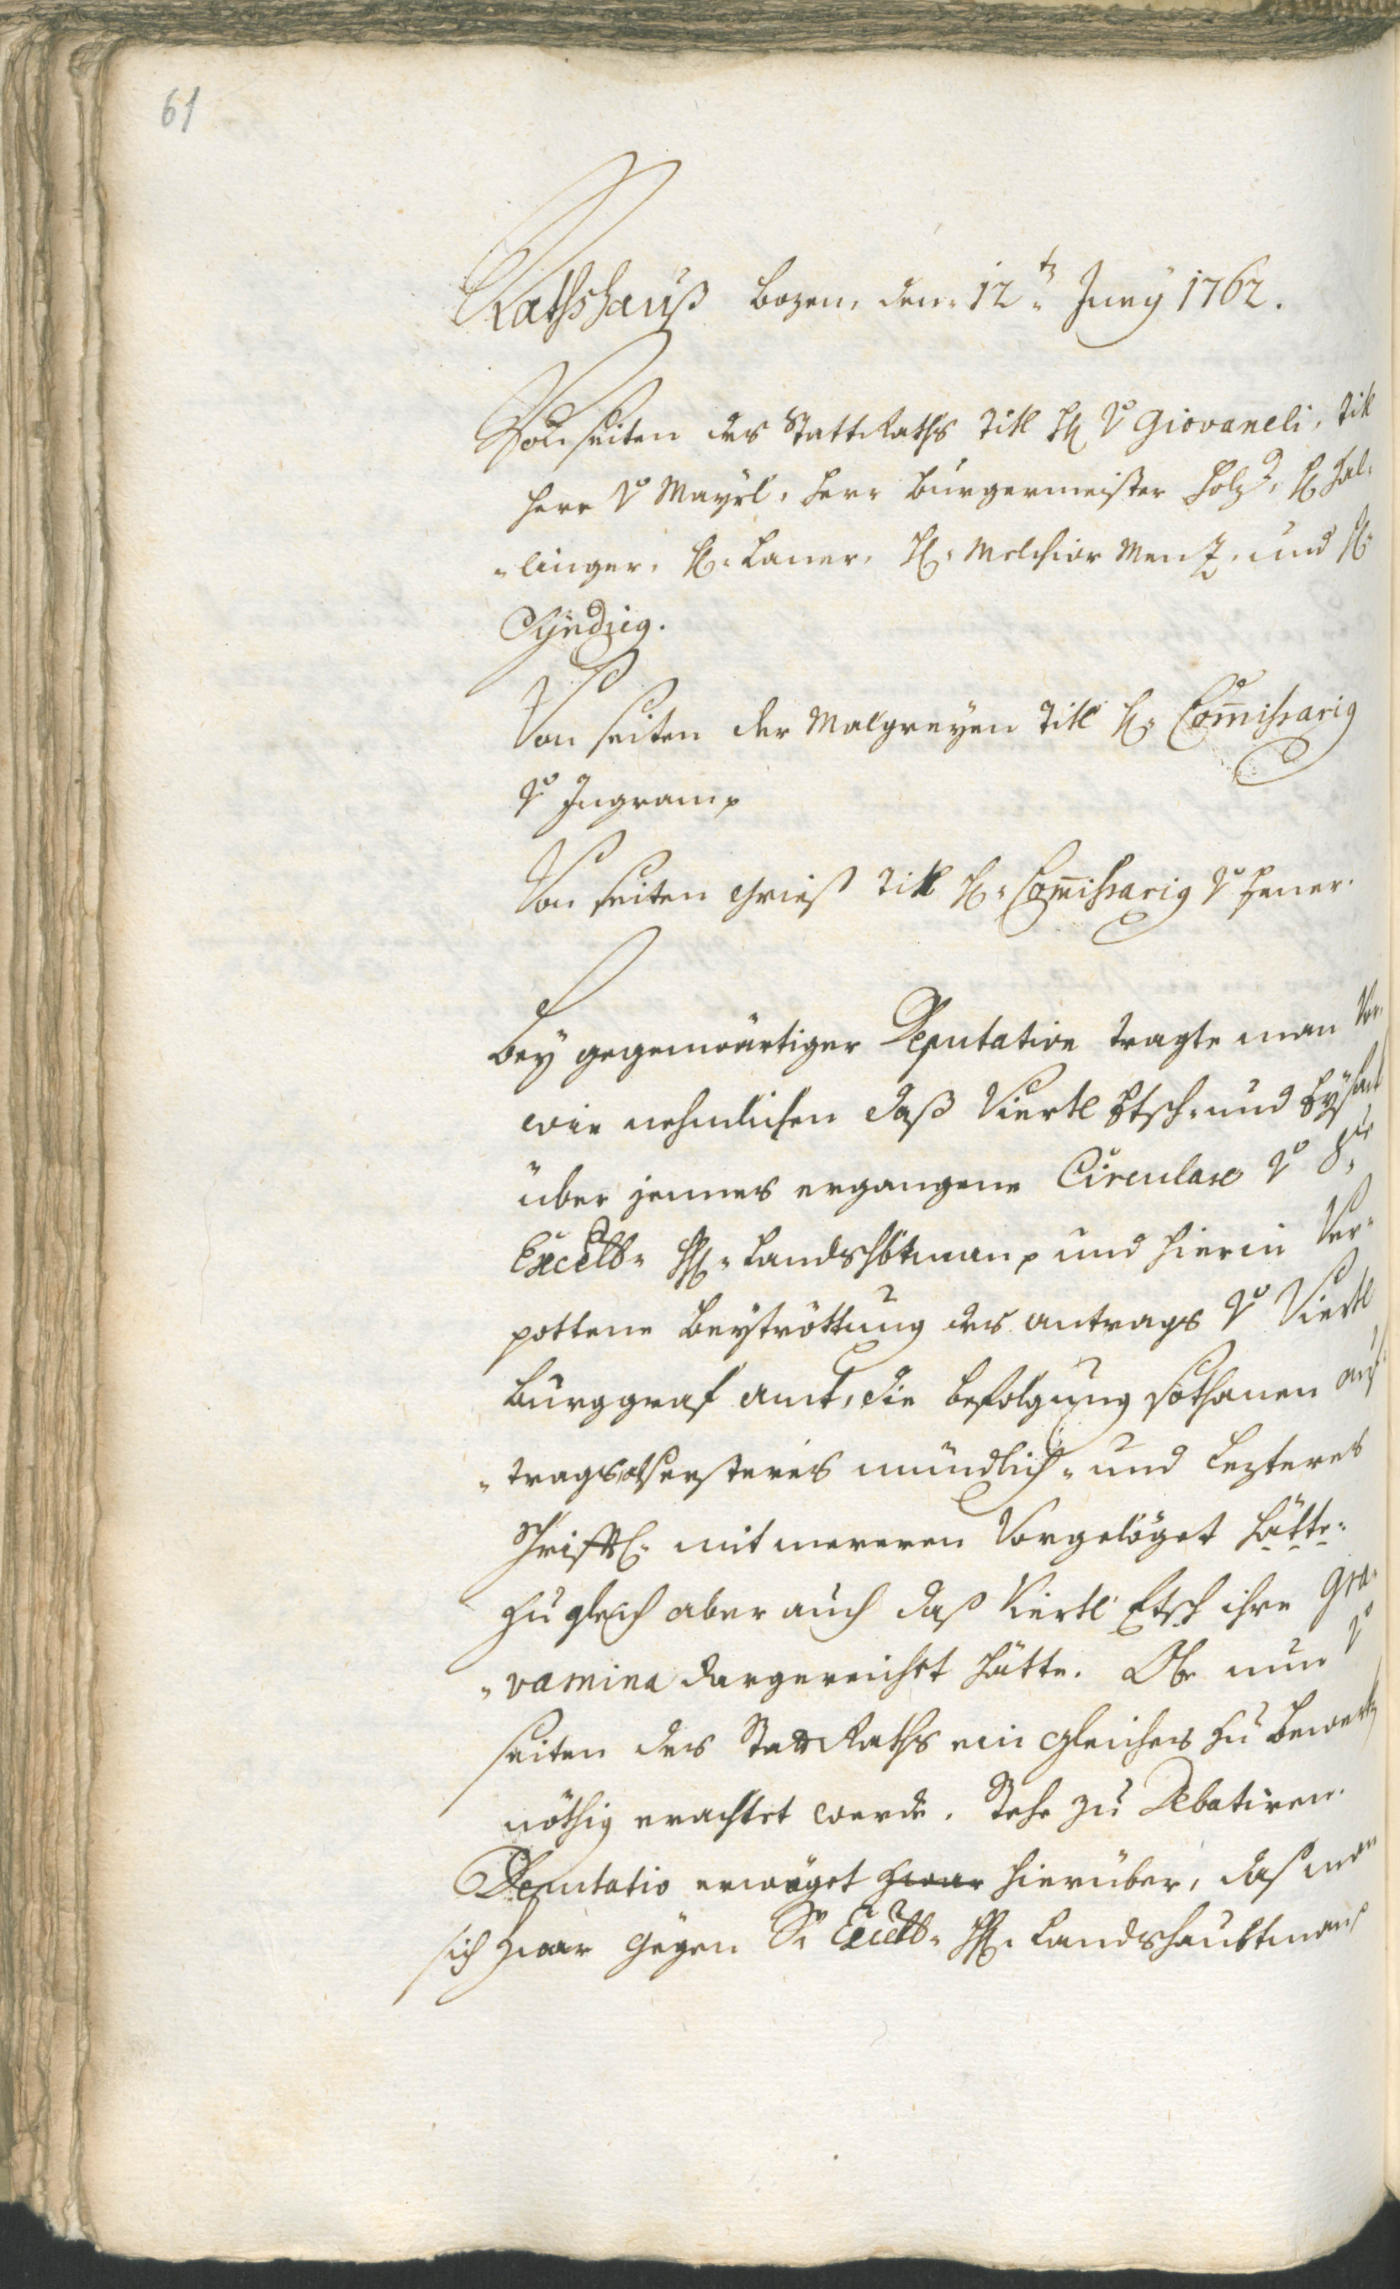 61
Rathshauß Bozen, den 12.tn Juny 1762.
Von seiten des Statt Raths Titl H: Vo Giovaneli, Titl
Herr Vo Mayrl, Herr Burgermeister Holz, H: Hal=
=linger, H: Laner, H: Melchior Menz, und H:
Syndicg.
Von seiten der Malgreyen Titl H: Com̄issarig
Vo Ingram
Von seiten Grieß Titl H: Com̄issarig Vo Hener.
Bey gegenwärtiger Deputation tragte man Vor,
wie nehmlichen daß Viertl Etsch= und Eysack
über jennes ergangene Circulare Vo Sr
Excellz H: Landshbtman, und hierin Ver=
pottene Beytröttung des antrags Vo Viertl
Burggraf amt, die befolgung sothanen an=
=trags, ersteres mündlich= und lezteres
schriftl: mit mereren Vorgelöget hätte=
zugleich aber auch daß Viertl Etsch ihre Gra=
=vamina dargereicht hätte. Ob nun Vo
seiten des Statt Raths ein gleiches zu bewerk
nöthig erachtet werde, stehe zu Debatiren.
Deputatio erwöget zwar hierüber, daß man
sich zwar gegen Sr Excellz H: Landshaubtman